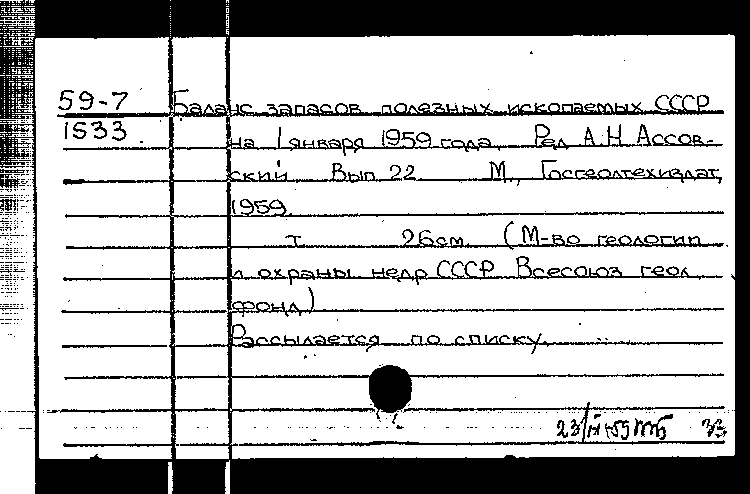 59-7 Баланс запасов полезных ископаемых СССР
1533 на 1 января 1959 года. Ред А.Н Ассов-
ский Вып 22 М., Госгеолтехиздат,
1959.
т 26см (М-во геологии
и охраны недр СССР Всесоюз геол
фонд)
Рассылается по списку.
23/IX-59